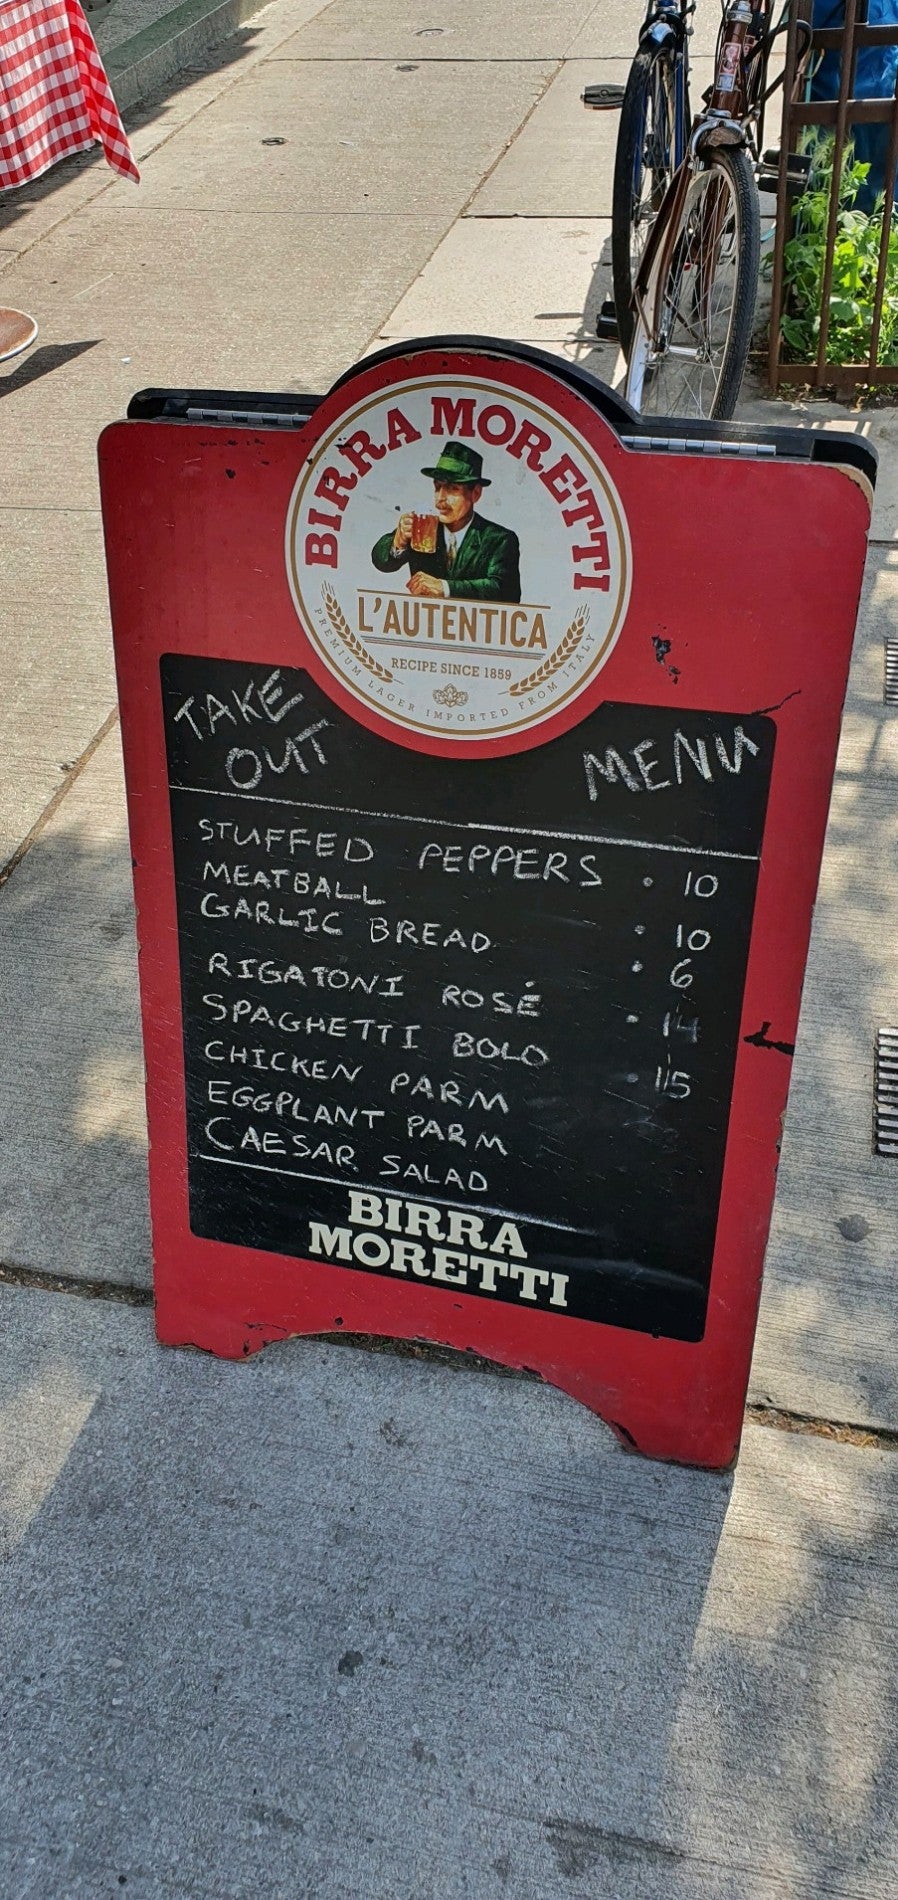 BIRRA MORETTI
L'AUTENTICA
RECIPE SINCE 1859
PREMIUM LAGER IMPORTED FROM ITALY
TAKE OUT MENU
STUFFED PEPPERS . 10
MEATBALL . 10
GARLIC BREAD . 6
RIGATONI ROSÉ . 14
SPAGHETTI BOLO . 15
CHICKEN PARM
EGGPLANT PARM
CAESAR SALAD
BIRRA
MORETTI